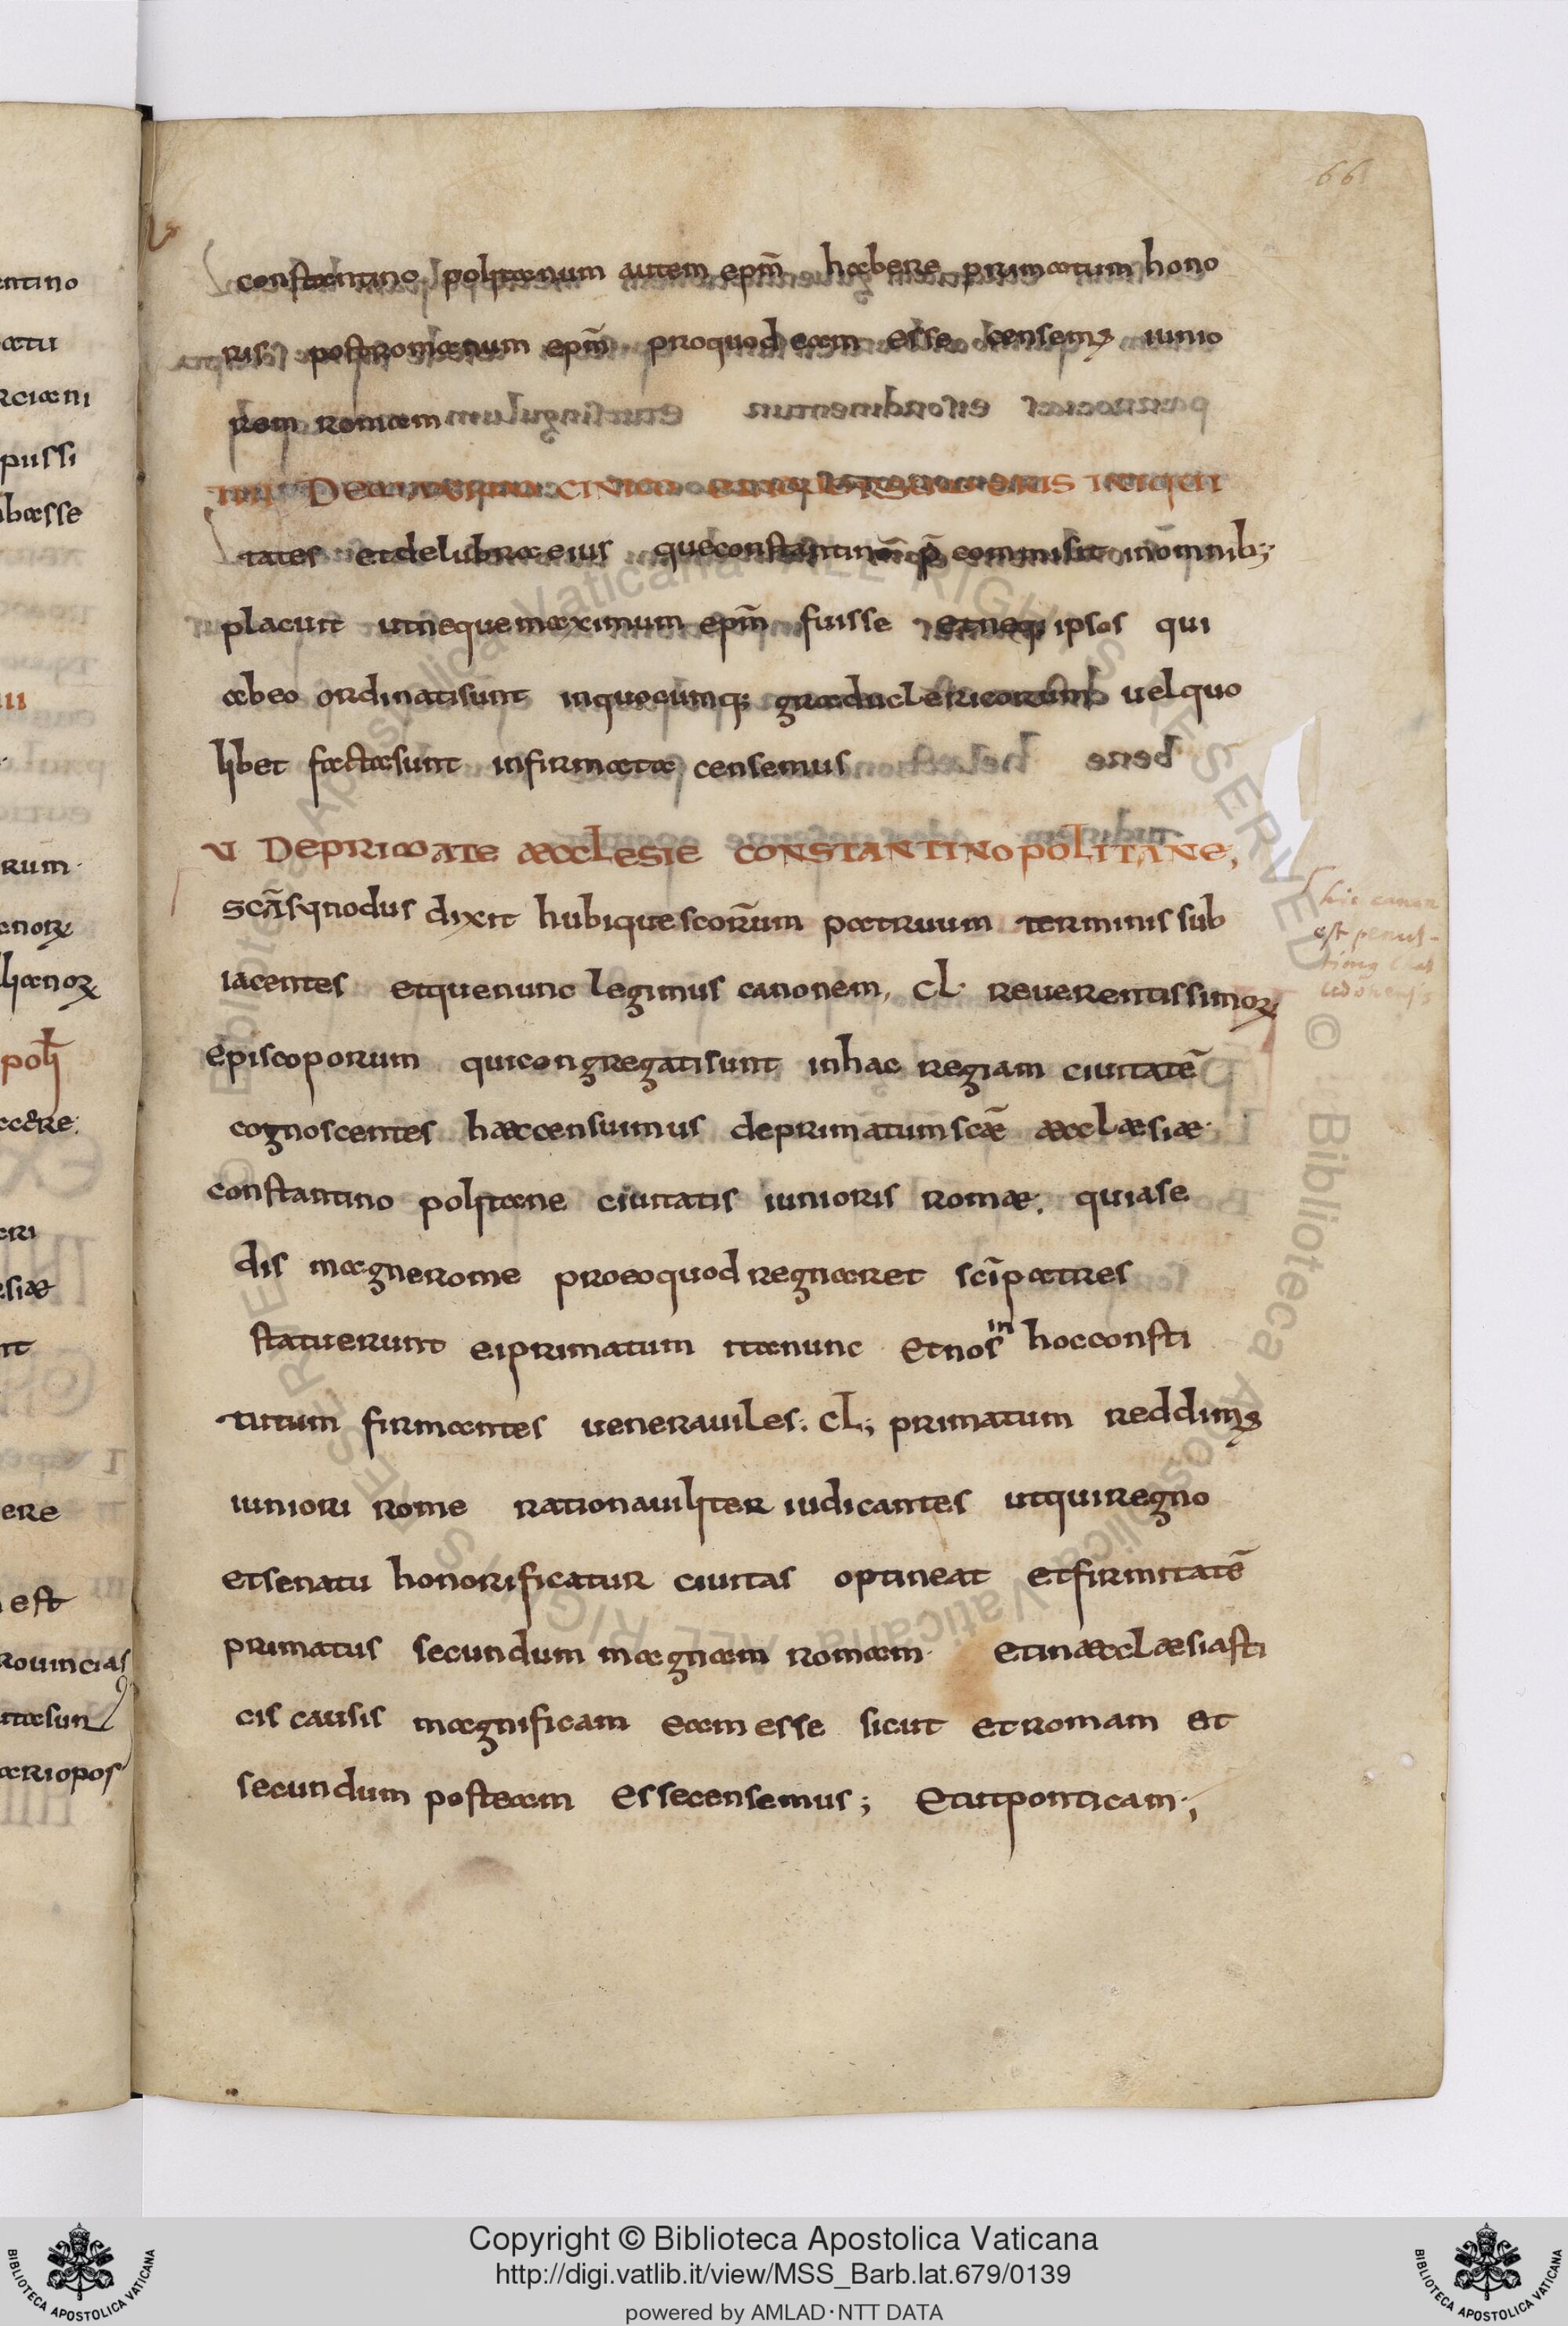 66
constantino politanum autem epm̄ habere primatum hono
ris postromanum epm̄ proquod eam esse censemꝰ iunio
rem romam
IIII De
tates etdelubra eius queconstantinō p̄ commisit inōmnib;
placuit utneque maximum epm̄ fuisse etneq; ipsos qui
abeo ordinatisunt inquocumq; graduclericorum uelquo
libet factasunt infirmata censemus
VI DEPRIMATE AECCLESIE CONSTANTINOPOLITANE,
scāsynodus dixit hubiquescorūm patruum terminis sub
iacentes etquenunc legimus canonem, CL· reuerentissimoꝝ
episcoporum quicongregatisunt inhac regiam ciuitatē
cognoscentes haeccensuimus deprimatumscāe aecclaesiae·
constantino politane ciuitatis iunioris romae; quiase
dis magnerome proeoquodregnaret scīpatres
statuerunt eiprimatum itanunc etnos in hocconsti
tutum firmantes uenerauiles: CL; primatum reddimꝰ
iuniori rome rationauiliter iudicantes utquiregno
etsenatu honorificatur ciuitas optineat etfirmitatē
primatus secundum magnam romam· etinaecclaesiasti
cis causis magnificam eam esse sicut etromam et
secundum posteam essecensemus; Etutponticam·,
hic canon
est penul-
Copyright © Biblioteca Apostolica Vaticana
http://digi.vatlib.it/view/MSS_Barb.lat.679/0139
powered by AMLAD·NTT DATA
BIBLIOTECA APOSTOLICA VATICANA
BIBLIOTECA APOSTOLICA VATICANA